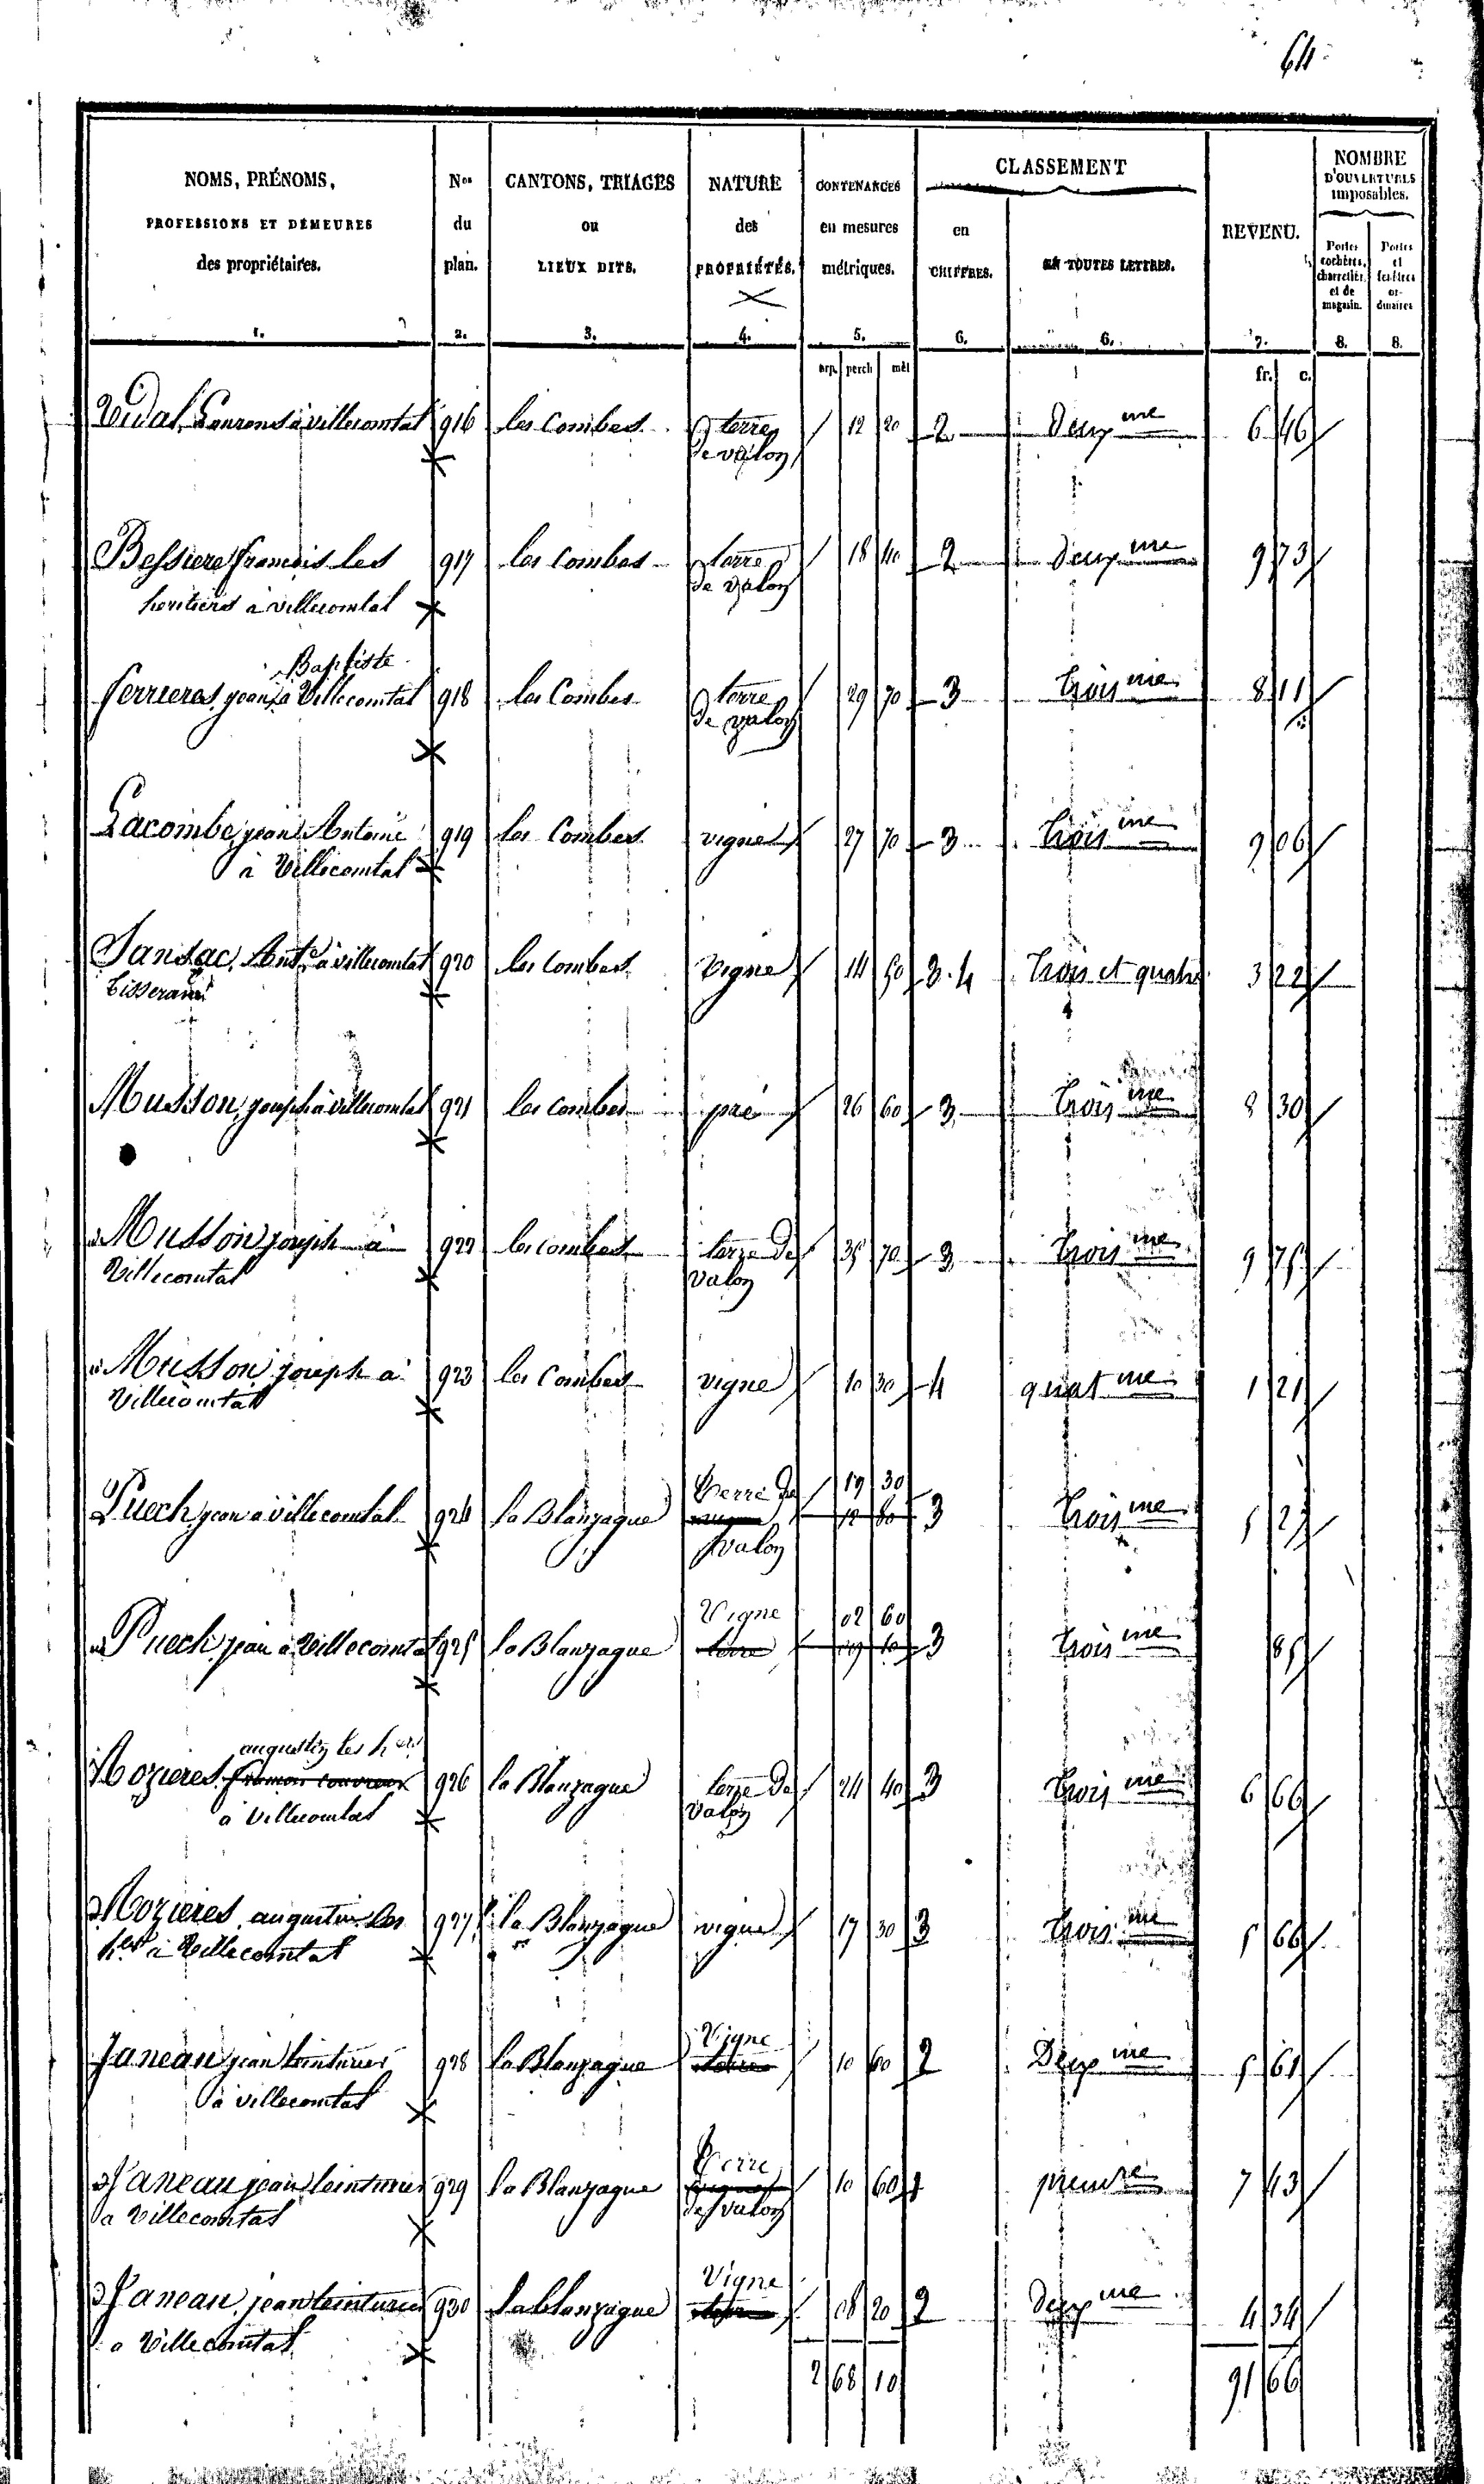 64
NOMS, PRÉNOMS, PROFESSIONS ET DEMEURES des propriétaires. 1.
Nos du plan. 2.
CANTONS, TRIAGES ou LIEUX DITS. 3.
NATURE des PROPRIÉTÉS. 4.
CONTENANCES en mesures métriques. 5.
CLASSEMENT
en CHIFFRES. 6.
EN TOUTES LETTRES. 6.
REVENU. 7.
NOMBRE D'OUVERTURES imposables.
Portes cochères, charretières et de magasin. 8.
Portes et fenêtres ordinaires 8.
arp. perch mèt fr. c.
Vidal, Laurens à villecomtal 916 les Combes terre 12 20 2 Deux me 6 46
de valon
Bessiere francois les 917 les Combes terre 18 40 2 deux me 9 73
heritiers à villecomtal de valon
Baptiste
ferrieres, jean, à Villecomtal 918 les Combes terre 29 70 3 trois me 8 11
de valon
Lacombe, jean Antoine 919 les Combes vigne 27 70 3 trois me 9 06
à Villecomtal
Jansac, Ant.e à villecomtal 920 les Combes Vigne 14 50 3.4 trois et quatre 3 22
tisserand
Musson, joseph à villecomtal 921 les combes pré 26 60 3 trois me 8 30
Musson joseph à 922 les combes terre de 35 70 3 trois me 9 75
Villecomtal valon
Musson joseph à 923 les Combes vigne 10 30 4 quat me 1 21
Villecomtal
terre de 19 30
Puech, jean à villecomtal 924 la Blanzague 12 80 3 trois me 5 27
valon
Vigne 02 60
Puech, jean à Villecomtal 925 la Blanzague terre 19 10 3 trois me 85
augustin les hers
Mozieres, 926 la Blanzague terre de 24 40 3 trois me 6 66
à Villecomtal valon
Mozieres, augustin les 927 la Blanzague vigne 17 30 3 trois me 5 66
hers à Villecomtal
Vigne
Janeau jean teinturier 928 la Blanzague 10 60 2 Deux me 5 61
à villecomtal
terre
Janeau jean teinturier 929 la Blanzague 10 60 1 premre 7 43
à Villecomtal de valon
Vigne
Janeau, jean teinturier 930 la blanzague 08 20 2 deux me 4 34
à Villecomtal
2 68 10 91 66